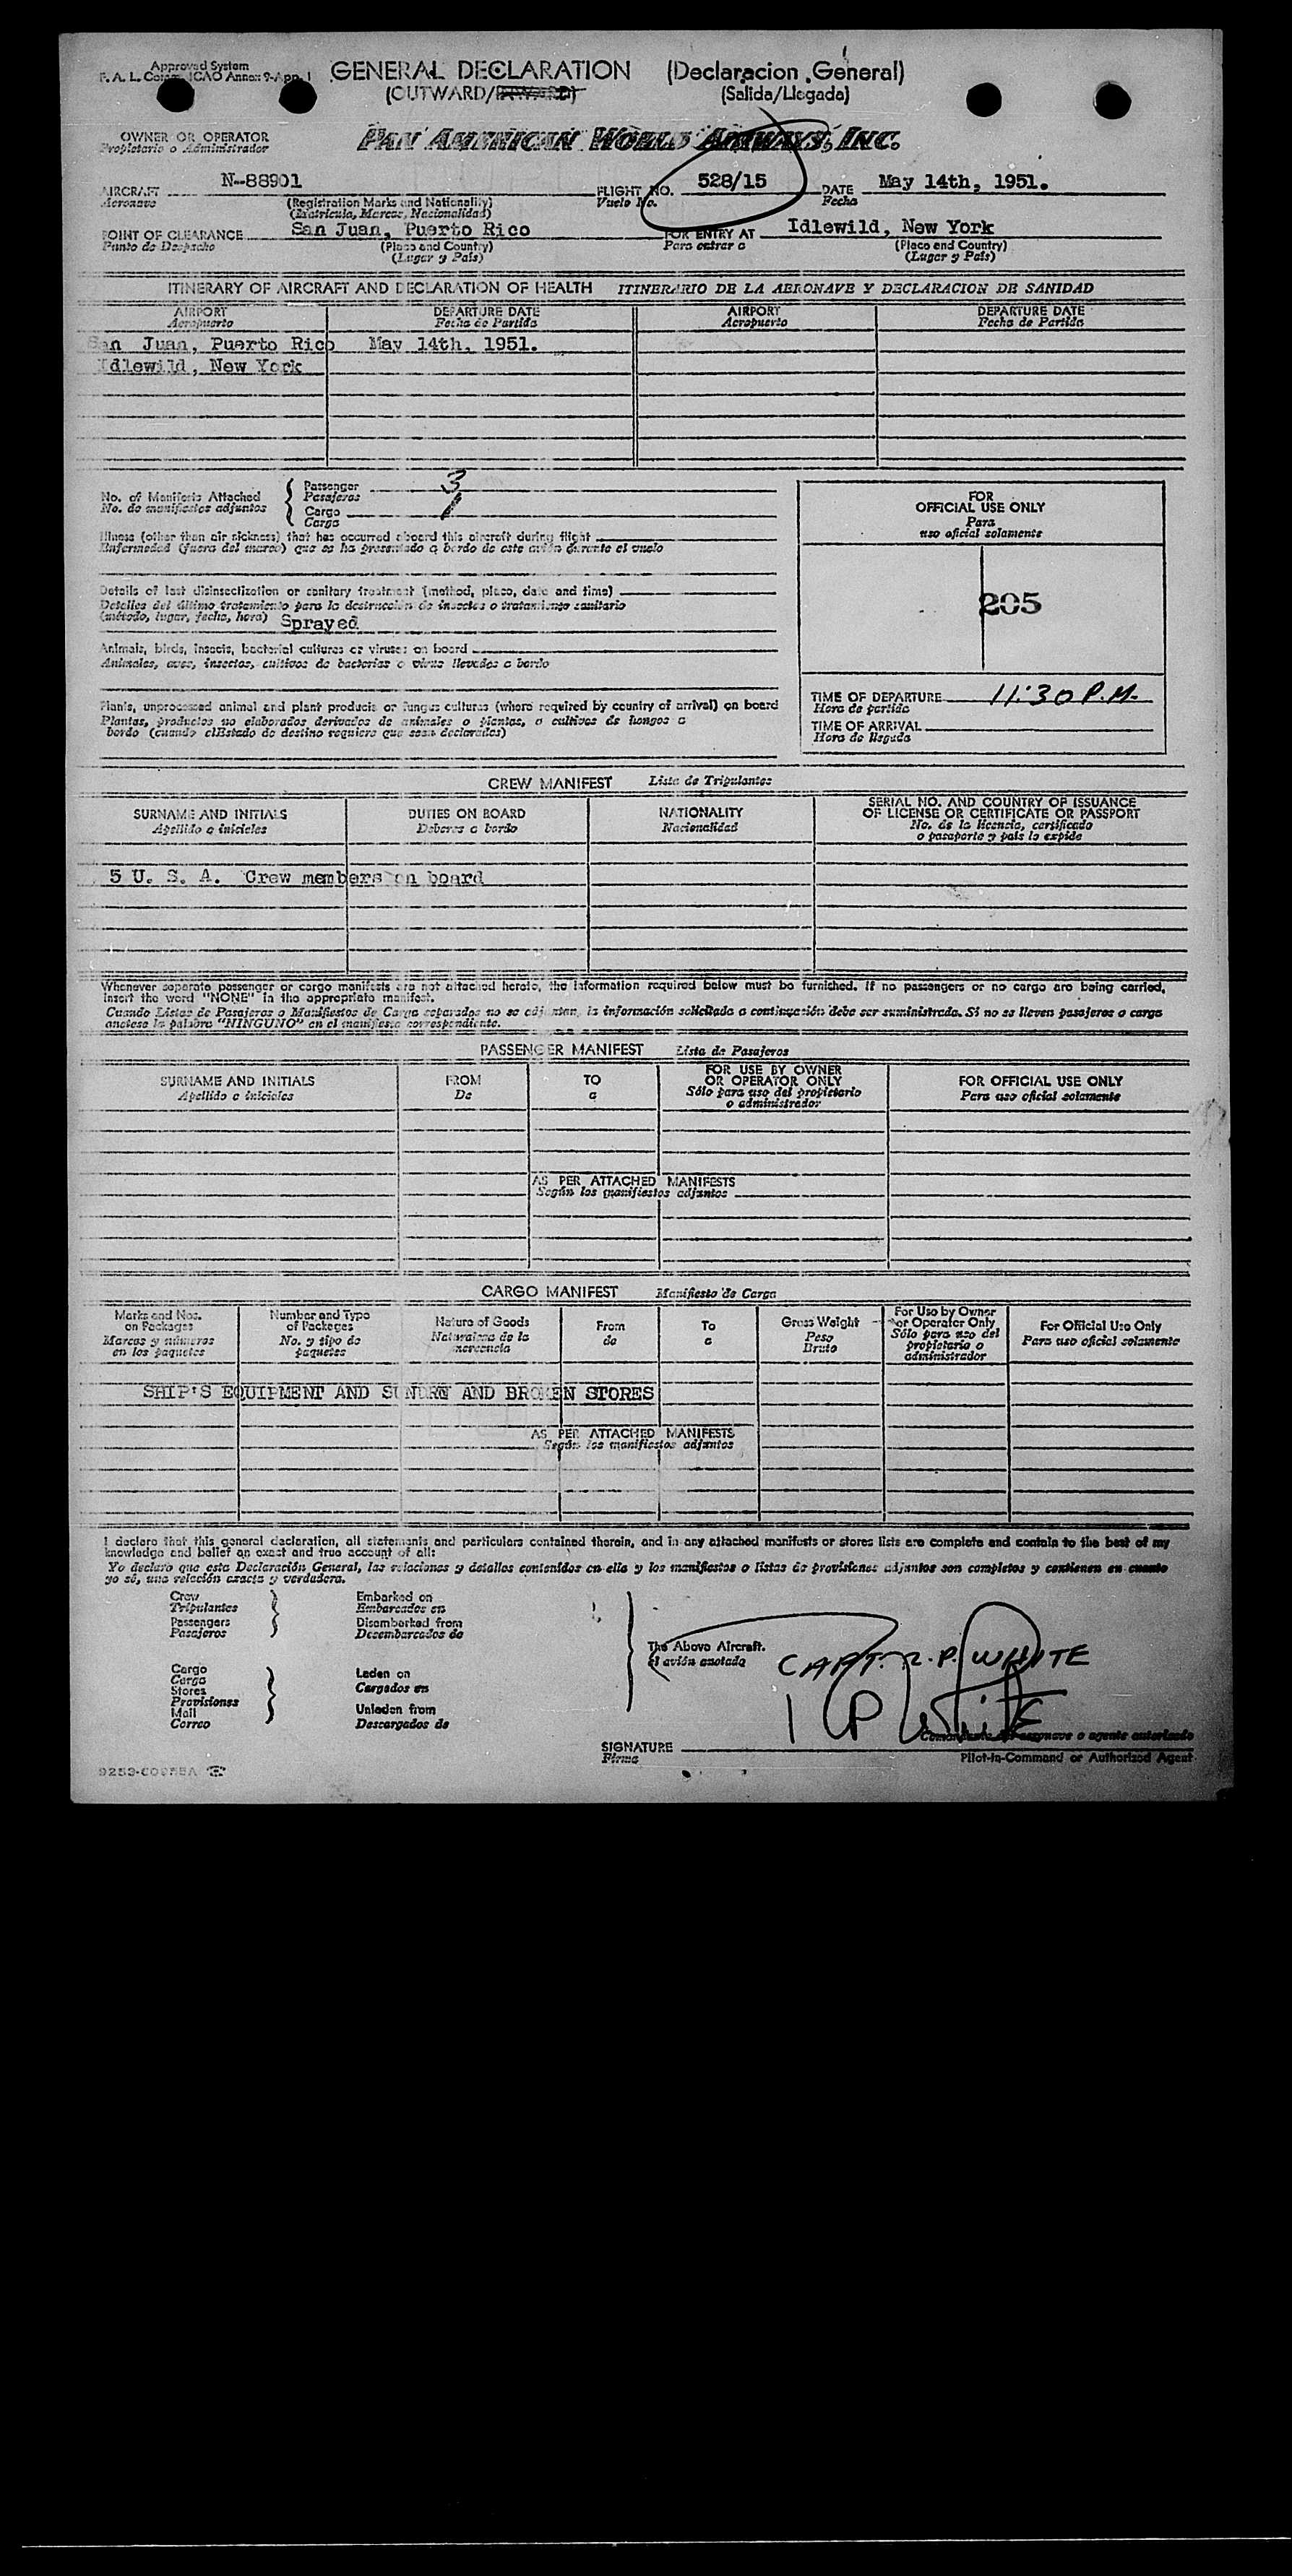 Approved System
F. A. L. Comm. ICAO Annex 9-App. 1
GENERAL DECLARATION (Declaracion General)
(OUTWARD/INWARD) (Salida/Llegada)
OWNER OR OPERATOR
Propietario o Administrador
PAN AMERICAN WORLD AIRWAYS, INC.
AIRCRAFT N-88901 FLIGHT NO. 528/15 DATE May 14th, 1951.
Aeronave (Registration Marks and Nationality) Vuelo No. Fecha
(Matricula, Marcas, Nacionalidad)
POINT OF CLEARANCE San Juan, Puerto Rico FOR ENTRY AT Idlewild, New York
Punto de Despacho (Place and Country) Para entrar a (Place and Country)
(Lugar y País) (Lugar y País)
ITINERARY OF AIRCRAFT AND DECLARATION OF HEALTH ITINERARIO DE LA AERONAVE Y DECLARACION DE SANIDAD
AIRPORT DEPARTURE DATE AIRPORT DEPARTURE DATE
Aeropuerto Fecha de Partida Aeropuerto Fecha de Partida
San Juan, Puerto Rico May 14th, 1951.
Idlewild, New York
No. of Manifests Attached
No. de manifiestos adjuntos
Passenger 3
Pasajeros
Cargo 1
Carga
Illness (other than air sickness) that has occurred aboard this aircraft during flight
Enfermedad (fuera del mareo) que se ha presentado a bordo de este avión durante el vuelo
Details of last disinsectization or sanitary treatment (method, place, date and time)
Detalles del último tratamiento para la destrucción de insectos o tratamiento sanitario
(método, lugar, fecha, hora) Sprayed
Animals, birds, insects, bacterial cultures or viruses on board
Animales, aves, insectos, cultivos de bacterias o virus llevados a bordo
Plants, unprocessed animal and plant products or fungus cultures (where required by country of arrival) on board
Plantas, productos no elaborados derivados de animales o plantas, o cultivos de hongos a
bordo (cuando elEstado de destino requiera que sean declarados)
FOR
OFFICIAL USE ONLY
Para
uso oficial solamente
205
TIME OF DEPARTURE 11:30 P.M.
Hora de partida
TIME OF ARRIVAL
Hora de llegada
CREW MANIFEST Lista de Tripulantes
SURNAME AND INITIALS DUTIES ON BOARD NATIONALITY SERIAL NO. AND COUNTRY OF ISSUANCE
OF LICENSE OR CERTIFICATE OR PASSPORT
Apellido o iniciales Deberes a bordo Nacionalidad No. de la licencia, certificado
o pasaporte y país lo expide
5 U. S. A. Crew members on board
Whenever separate passenger or cargo manifests are not attached hereto, the information required below must be furnished. If no passengers or no cargo are being carried,
insert the word "NONE" in the appropriate manifest.
Cuando Listas de Pasajeros o Manifiestos de Carga separados no se adjuntan, la información solicitada a continuación debe ser suministrada. Si no se lleven pasajeros o carga
anótese la palabra "NINGUNO" en el manifiesto correspondiente.
PASSENGER MANIFEST Lista de Pasajeros
SURNAME AND INITIALS FROM TO FOR USE BY OWNER
OR OPERATOR ONLY FOR OFFICIAL USE ONLY
Apellido e iniciales De a Sólo para uso del propietario
o administrador Para uso oficial solamente
AS PER ATTACHED MANIFESTS
Según los manifiestos adjuntos
CARGO MANIFEST Manifiesto de Carga
Marks and Nos.
on Packages
Marcas y números
en los paquetes
Number and Type
of Packages
No. y tipo de
paquetes
Nature of Goods
Naturaleza de la
mercancía
From
de
To
a
Gross Weight
Peso
Bruto
For Use by Owner
or Operator Only
Sólo para uso del
propietario o
administrador
For Official Use Only
Para uso oficial solamente
SHIP'S EQUIPMENT AND SUNDRY AND BROKEN STORES
AS PER ATTACHED MANIFESTS
Según los manifiestos adjuntos
I declare that this general declaration, all statements and particulars contained therein, and in any attached manifests or stores lists are complete and contain to the best of my
knowledge and belief an exact and true account of all:
Yo declaro que esta Declaración General, las relaciones y detalles contenidos en ella y los manifiestos o listas de provisiones adjuntos son completos y contienen en cuanto
yo sé, una relación exacta y verdadera.
Crew
Tripulantes
Passengers
Pasajeros
Embarked on
Embarcados en
Disembarked from
Desembarcados de
Cargo
Carga
Stores
Provisiones
Mail
Correo
Laden on
Cargados en
Unladen from
Descargados de
The Above Aircraft.
el avión anotado
CAPT. R. P. WHITE
R P White
SIGNATURE
Firma
Comandante de aeronave o agente autorizado
Pilot-in-Command or Authorized Agent